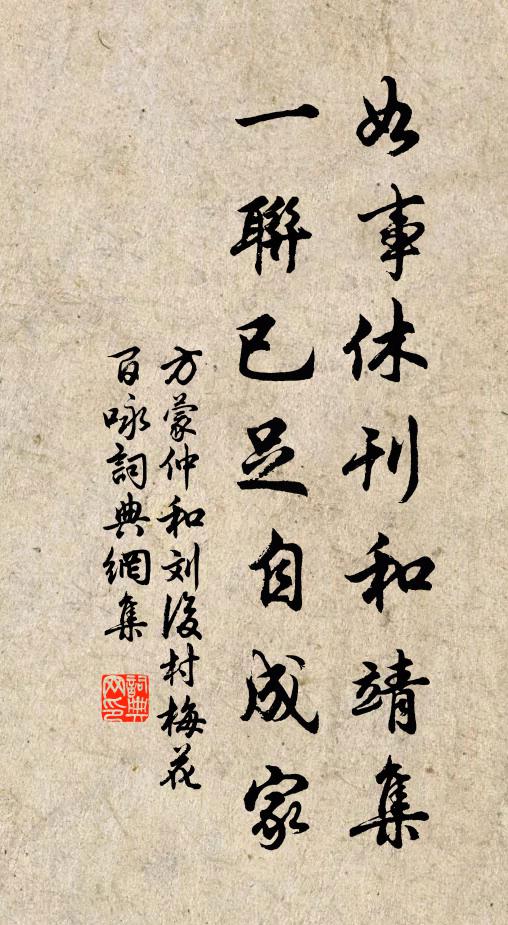 如事休刊和靖集
一聯已足自成家
方蒙仲和刘後村梅花
百咏詞典網集
詞典网印